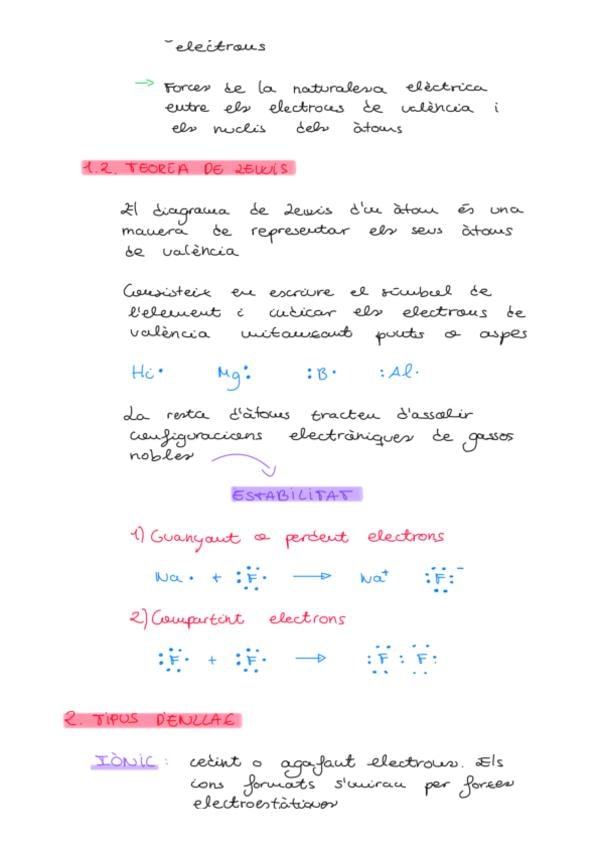 electrons
→ Forces de la naturalesa elèctrica
entre els electrons de valència i
els nuclis dels àtoms
1.2. TEORÍA DE LEWIS
El diagrama de Lewis d'un àtom és una
manera de representar els seus àtoms
de valència
Consisteix en escriure el símbol de
l'element i indicar els electrons de
valència mitjançant punts o aspes
Hi• Mg: :B· :Al·
La resta d'àtoms tracten d'assolir
configuracions electròniques de gasos
nobles
ESTABILITAT
1) Guanyant o perdent electrons
Na · + :F· → Na⁺ :F:⁻
2) Compartint electrons
:F· + :F· → :F : F:
2. TIPUS D'ENLLAÇ
IÒNIC: cedint o agafant electrons. Els
ions formats s'uniran per forces
electroestàtiques